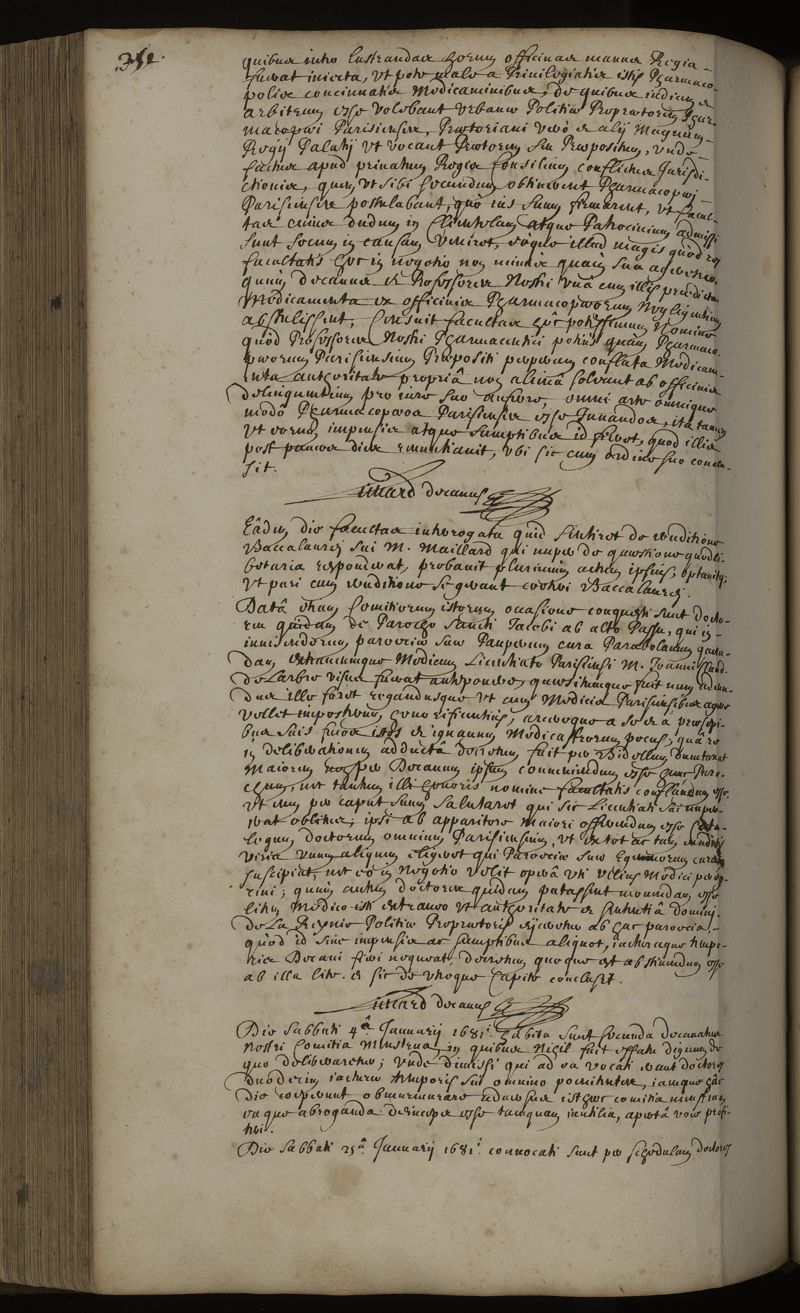 quibus intro lustrandas horum officinas manus Regia
fuerat iniecta, ut pote male a Privilegiatis istis Pharmaco-
polis concinnatis Medicaminibus, de quibus iudicem &
arbitrum esse volebant urbanum Politiae Propraetorem Phar-
macopoei Parisienses, Praetoriani vero & alij Magnum
Regij Palatij ut vocant Praetorem seu Praepositum, unde
factus apud privatum Regis Consilium conflictus Jurisdi-
ctionis, quem ut sibi secundum obtinerent Pharmacopoei
Parisienses postulabant, quo ius suum firmarent, ut facul-
tas cuius dudum in Clientelam atque Patrocinium admissi
sunt secum in causam veniret, eoque illud magis quod res
facultatis hoc in negotio non minus quam sua ageretur,
quum decanus & Professores Nostri una cum illis praedicta
Medicamenta ex officinis Pharmacopoeorum
abstulissent, Censuit facultas hoc potissimum Nomine
quod Professores Nostri Pharmaceutici potius quam Pharmaco-
poeorum Parisiensium Praepositi perperam conflata Medicam-
enta authoritate propriâ non alienâ soleant ab officinis
delinquentium pro iure suo auferre, omni arte omnique
modo Pharmacopoeos Parisienses esse Juvandos, ita tamen
ut eorum impensis atque sumptibus id fieret, quod illis
post paucos dies renuntiavit, ubi sic cum ordine suo conclu-
sit.
Lienard decanus
Eâdem die facultas interrogata quid sentiret de renditione
Baccalaurei sui M. Maillard qui nuper de quaestione quodli-
betaria responderat, probavit plurimum actum ipsius, optavitq;
ut pari cum renditione sequerent coeteri Baccalaurei.
Datâ etiam Comitiorum istorum occasione conquesti sunt docto-
res quidam de Parocho Sancti Jacobi ab alto Passu, qui in
invisendorum parociae suae Pauperum cura Parabolanum quem-
dam extraneumque Medicum Licentiato Parisiensi M. Joanni
de Larbre visus fuerat anteponere, quaesitumque fuit num adeun-
dus ille foret rogandusque ut cum Medicis Parisiensibus agere
vellet imposterum, arceretque a se & a praesepi-
bus suis fucos istos & ignavum Medicastrorum pecus, quâ re
in deliberationem adductâ decretum fuit per Bidellum dumtaxat
Maiorem non per Decanum ipsum conveniendum esse hunc Paro-
chum, nec tantum illi honoris nomine facultatis conflandum esse
ut eum per caput suum salutaret qui sic Licentiati sui nuper
erat oblitus, ipsi ab apparitore maiori offerendum esse Cata-
logum doctorum omnium Parisiensium, ut ex tot ac tam eruditis
viris unum aliquem eligeret qui Parociae suae Egenorum curam
suscipiat, nec eo in negotio velit operâ uti vilius Medici pereg-
rini; quum autem doctores quidam putassent movendam esse
litem Medico isti extraneo ut authoritate & sententiâ domini
de La Reynie Politiae Propraetoris eijceretur ab hac parocia,
quod id sine impensis ac sumptibus aliquot, iacturaque tempo-
ris Decani fieri nequeat, decretum quoque est abstinendum esse
ab illa lite. & sic de utroque Capite conclusit.
Lienard decanus
Die Sabbati 4â Januarij 1681i. habita sunt secunda decanatus
nostri Comitia Menstrua, in quibus Nihil fuit effatu dignum de
quo deliberaretur; unde dimissi qui ad ea vocati erant doctores
duodecim iacturae temporis sui omnino poenitentes, iamque hac
die coeperunt obmurmurare adversus isthaec comitia menstrua,
eaque abroganda deinceps esse tanquam inutilia, apertâ voce profi-
teri.
Die Sabbati 25â Januarij 1681i. convocati sunt per schedulam doctores